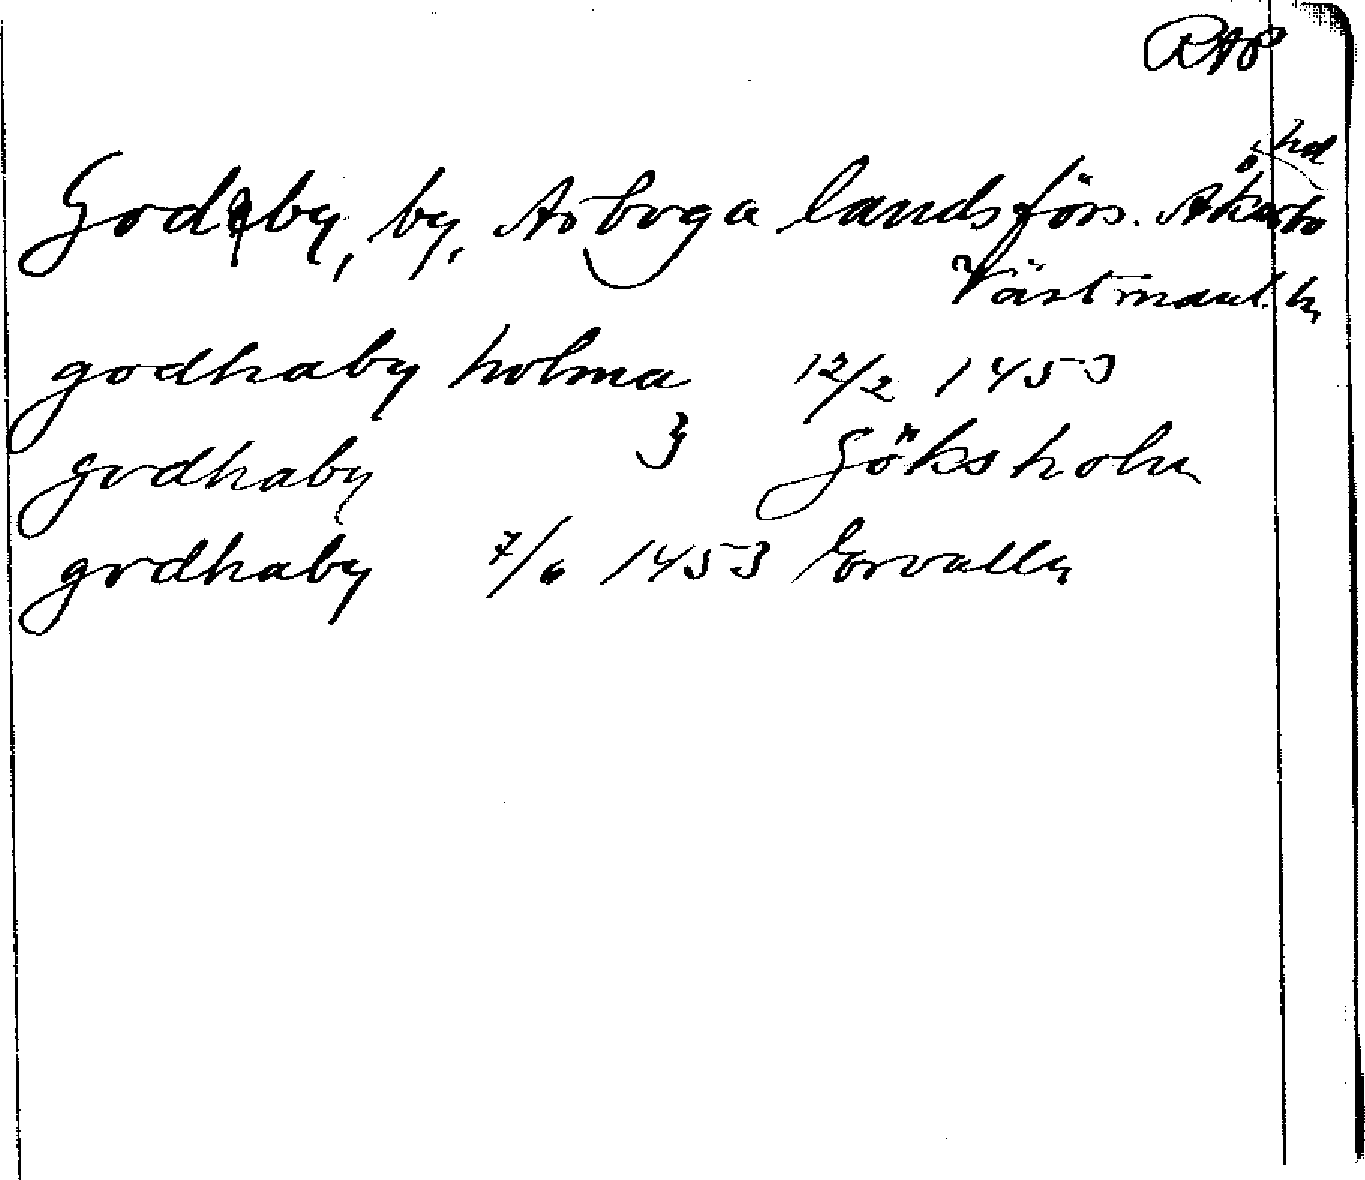 RAP
Godeby, by, Arboga landsförs. Åkerbo hd
Västmanl. l.
godhaby holma } 12/2 1453
godhaby } Göksholm
godhaby 7/6 1453 Ervalla